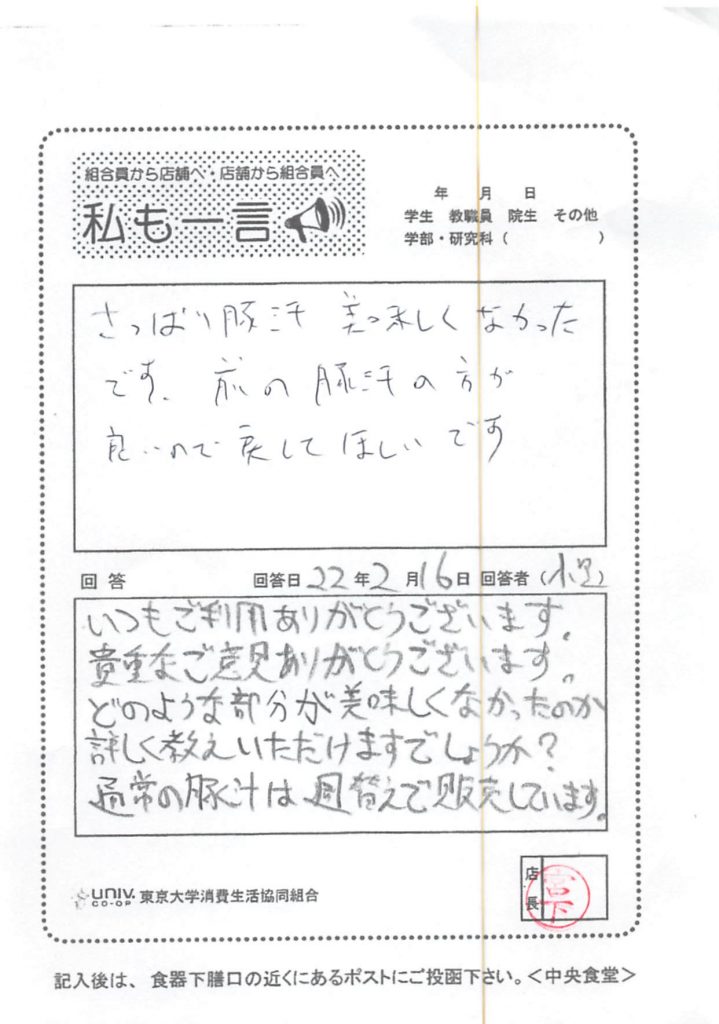 組合員から店舗へ・店舗から組合員へ
私も一言
年 月 日
学生 教職員 院生 その他
学部・研究科( )
さっぱり豚汁 美味しくなかった
です。前の豚汁の方が
良いので戻してほしいです
回答 回答日 22年2月16日 回答者( )
いつもご利用ありがとうございます。
貴重なご意見ありがとうございます。
どのような部分が美味しくなかったのか
詳しく教えいただけますでしょうか?
通常の豚汁は週替えで販売しています。
店長
宮下
UNIV.
CO-OP
東京大学消費生活協同組合
記入後は、食器下膳口の近くにあるポストにご投函下さい。<中央食堂>